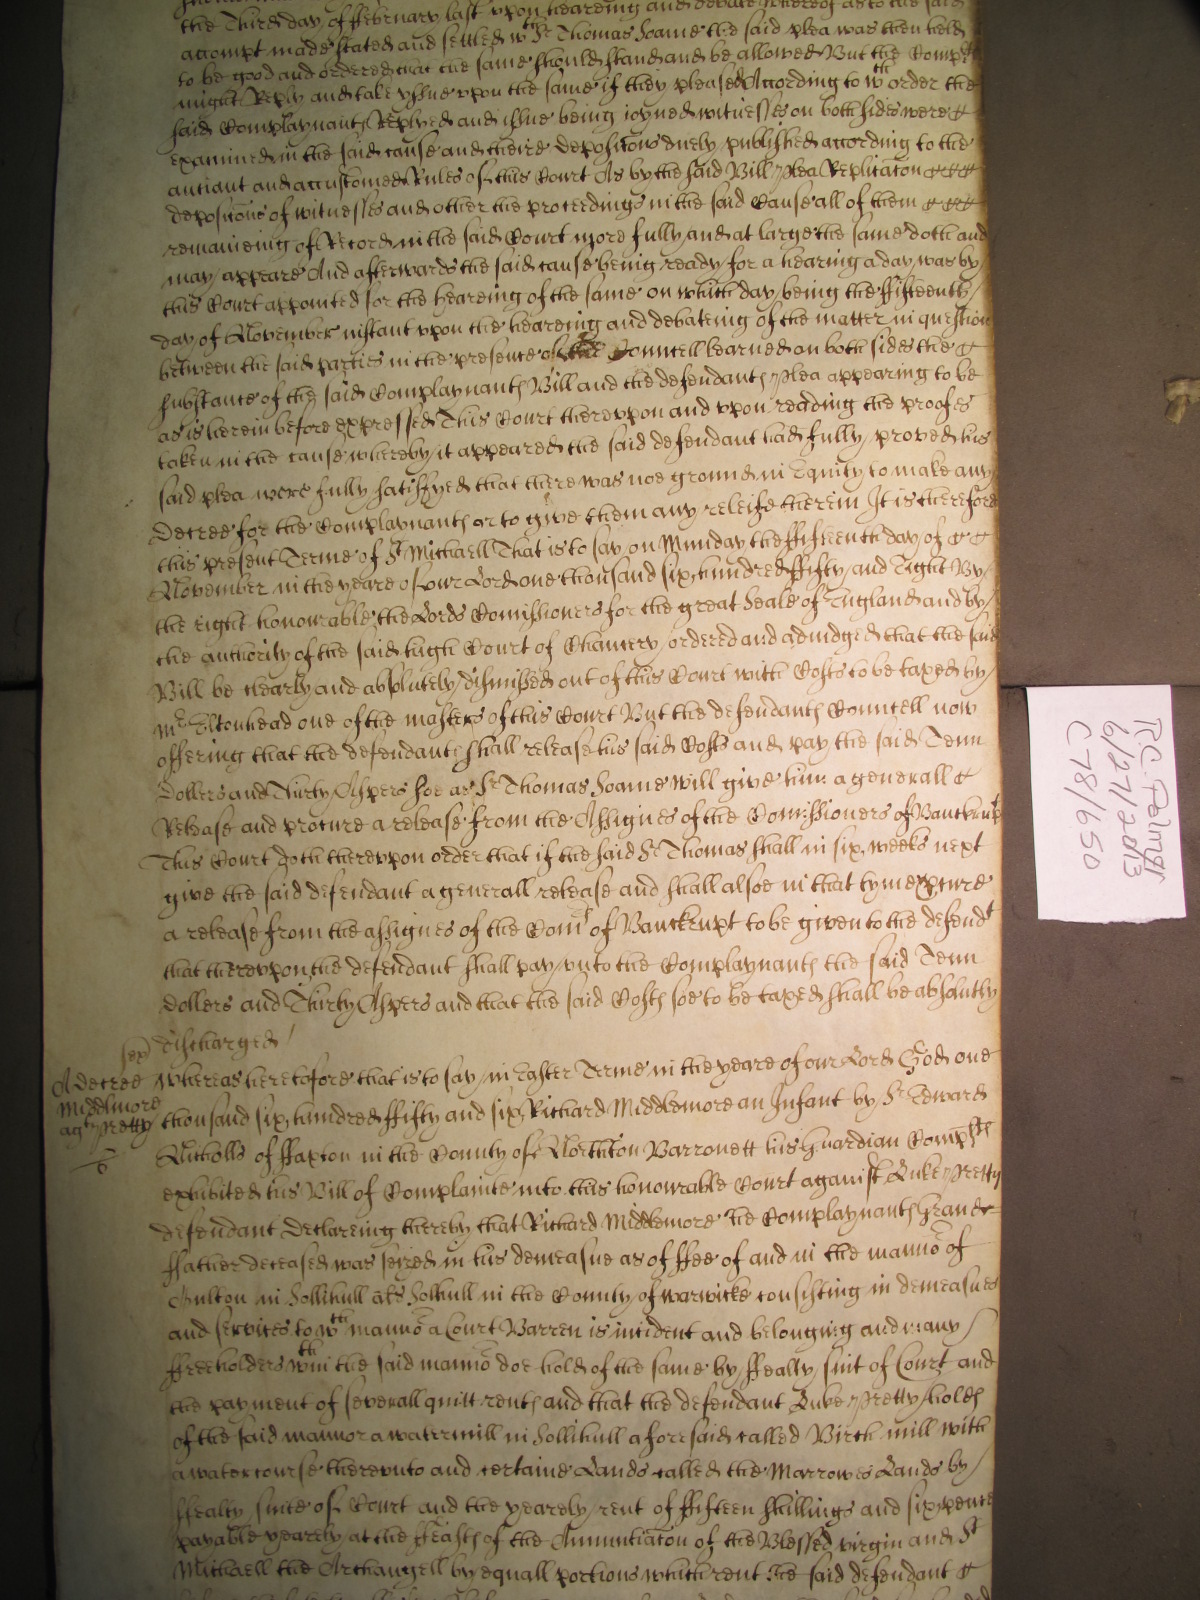 the Third day of ffebruary last vpon heareing and debate thereof as to the said
accompt made stated and setled wth Sr Thomas Soame the said plea was then held
to be good and ordered that the same should stand and be allowed But the Complts
might Reply and take yssue vpon the same if they pleased According to wch order the
said Complaynants Replyed and issue being ioyned witnesses on both sides were
examined in the said cause and theire deposicõns duely published according to the
antiant and accustomed Rules of this Court As by the said Bill Plea Replicacõn
deposicõns of witnesses and other the proceedings in the said Cause all of them
remaineing of Record in the said Court more fully and at large the same doth and
may appeare And afterwards the said cause being ready for a hearing a day was by
this Court appointed for the heareing of the same on which day being the ffifteenth
day of November instant vpon the heareing and debateing of the matter in question
between the said parties in the presence of the Councell learned on both sides the
substance of the said Complaynants Bill and the defendants Plea appearing to be
as is herein before expressed This Court therevpon and vpon reading the proofes
taken in the cause whereby it appeared the said defendant had fully proved his
said plea were fully satisfyed that there was noe ground in Equity to make any
Decree for the Complaynants or to give them any releife therein It is therefore
this present Terme of St Michaell That is to say on Munday the ffifteenth day of
November in the yeare of our Lord one thousand six hundred ffifty and Eight By
the right honourable the Lords Comissioners for the great Seale of England and by
the authority of the said high Court of Chancery ordered and adiudged that the said
Bill be clearly and absolutely dismissed out of this Court with Costs to be taxed by
Mr Eltonhead one of the masters of this Court But the defendants Councell now
offering that the defendant shall release his said Costs and pay the said Tenn
Dollers and Thirty Aspers soe as Sr Thomas Soame will give him a generall
Release and procure a release from the Assignes of the Comissioners of Banckrupt
This Court doth therevpon order that if the said Sr Thomas shall in six weeks next
give the said defendant a generall release and shall alsoe in that tyme procure
a release from the assignes of the Comrs of Banckrupt to be given to the defendt
that therevpon the defendant shall pay vnto the Complaynants the said Tenn
dollers and Thirty Aspers and that the said Costs soe to be taxed shall be absolutly
discharged
A decree
Middlmore
agt Pretty
Whereas heretofore that is to say in Easter Terme in the yeare of our Lord God one
thousand six hundred ffifty and six Richard Middlemore an Infant by Sr Edward
Nicholls of ffaxton in the County of Northton Barronett his Guardian Complt
exhibited his Bill of Complainte into this honourable Court against Luke Pretty
defendant Declareing thereby that Richard Middlemore the Complaynants Grand
ffather deceased was seized in his demeasne as of ffee of and in the mannor of
Oulton in Sollihull als Solhull in the County of Warwicke consisting in demeasnes
and services to wch mannor a Court Barren is incident and belonging and many
ffreeholders wthin the said mannor doe hold of the same by ffealty suit of Court and
the payment of severall quitt rents and that the defendant Luke Pretty holds
of the said mannor a watermill in Sollihull aforesaid called Birch mill with
a watercourse therevnto and certaine Lands called the Marrowes Lands by
ffealty suite of Court and the yearely rent of ffifteen shillings and six pence
payable yearely at the ffeasts of the Annunciacõn of the Blessed virgin and St
Michaell the Archangell by equall portions which rent the said defendant
R.C. Palmer
6/27/2013
C78/650